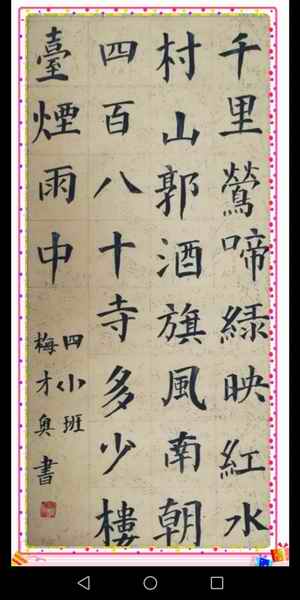 千里鶯啼綠映紅水
村山郭酒旗風南朝
四百八十寺多少樓
臺煙雨中
四小班
梅才奥書